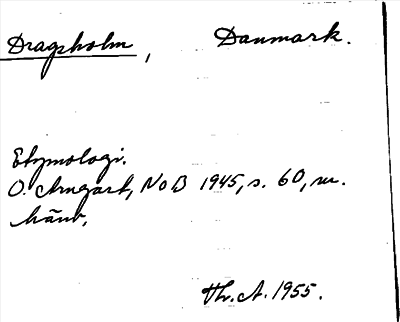 Dragsholm, Danmark.
Etymologi.
O. Arngart, NoB 1945, s. 60, m.
hänv.
Th. A. 1955.